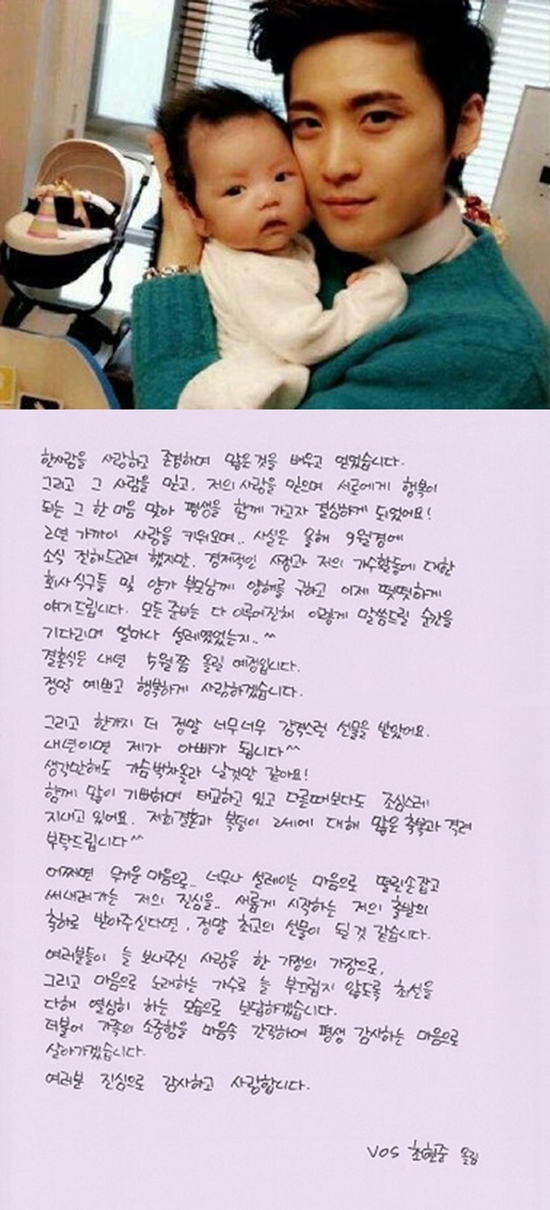 한사람을 사랑하고 존경하며 많은것을 배우고 얻었습니다.
그리고 그 사람을 믿고, 저의 사랑을 믿으며 서로에게 행복이
되는 그 한마음 맞아 평생을 함께 가고자 결심하게 되었어요!
2년 가까이 사랑을 키워오며.. 사실은 올해 9월경에
소식 전해드리려 했지만, 경제적인 사정과 저의 가수활동에 대한
회사식구들 및 양가 부모님께 양해를 구하고 이제 떳떳하게
얘기드립니다. 모든준비는 다 이루어진채 이렇게 말씀드릴 순간을
기다리며 얼마나 설레였었는지.. ^^
결혼식은 내년 5월쯤 올릴 예정입니다.
정말 예쁘고 행복하게 사랑하겠습니다.
그리고 한가지 더 정말 너무너무 감격스런 선물을 받았어요.
내년이면 제가 아빠가 됩니다^^
생각만해도 가슴벅차올라 날것만 같아요!
함께 많이 기뻐하며 태교하고 있고 다른때보다도 조심스레
지내고 있어요. 저희결혼과 복덩이 2세에 대해 많은 축복과 격려
부탁드립니다^^
어쩌면 무거운 마음으로.. 너무나 설레이는 마음으로 떨린손잡고
써내려가는 저의 진심을.. 새롭게 시작하는 저의 출발의
축하로 받아주신다면, 정말 최고의 선물이 될것 같습니다.
여러분들이 늘 보내주신 사랑을 한 가정의 가장으로,
그리고 마음으로 노래하는 가수로 늘 부끄럽지 않도록 최선을
다해 열심히 하는 모습으로 보답하겠습니다.
더불어 가족의 소중함을 마음속 간직하며 평생 감사하는 마음으로
살아가겠습니다.
여러분 진심으로 감사하고 사랑합니다.
VOS 최현준 올림